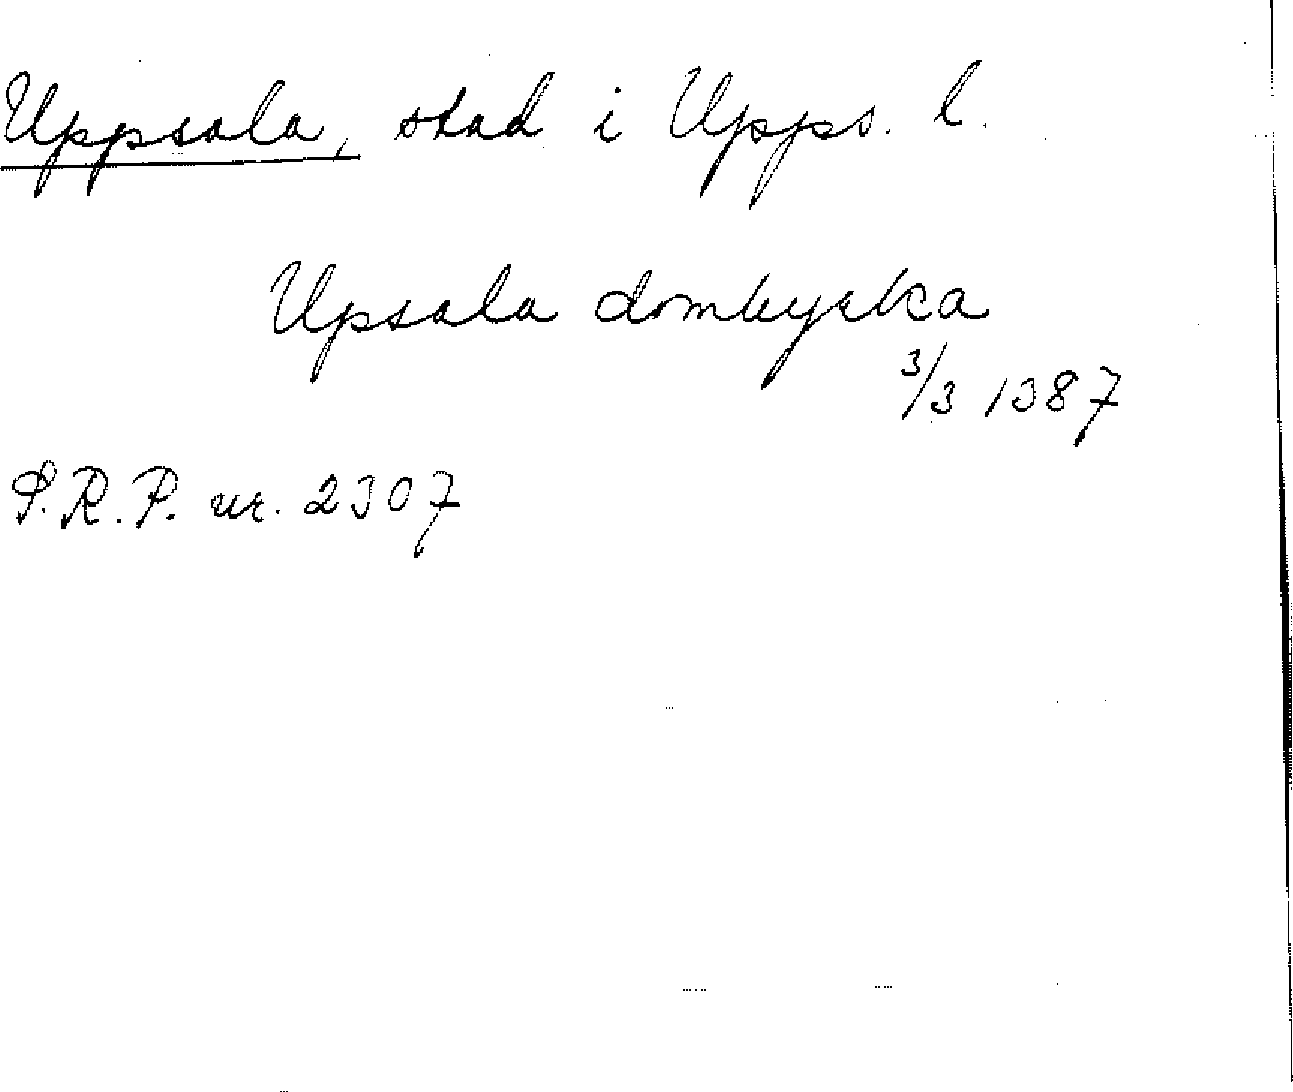 Uppsala, stad i Upps. l.
Upsala domkyrka
3/3 1387
S.R.P. nr. 2307